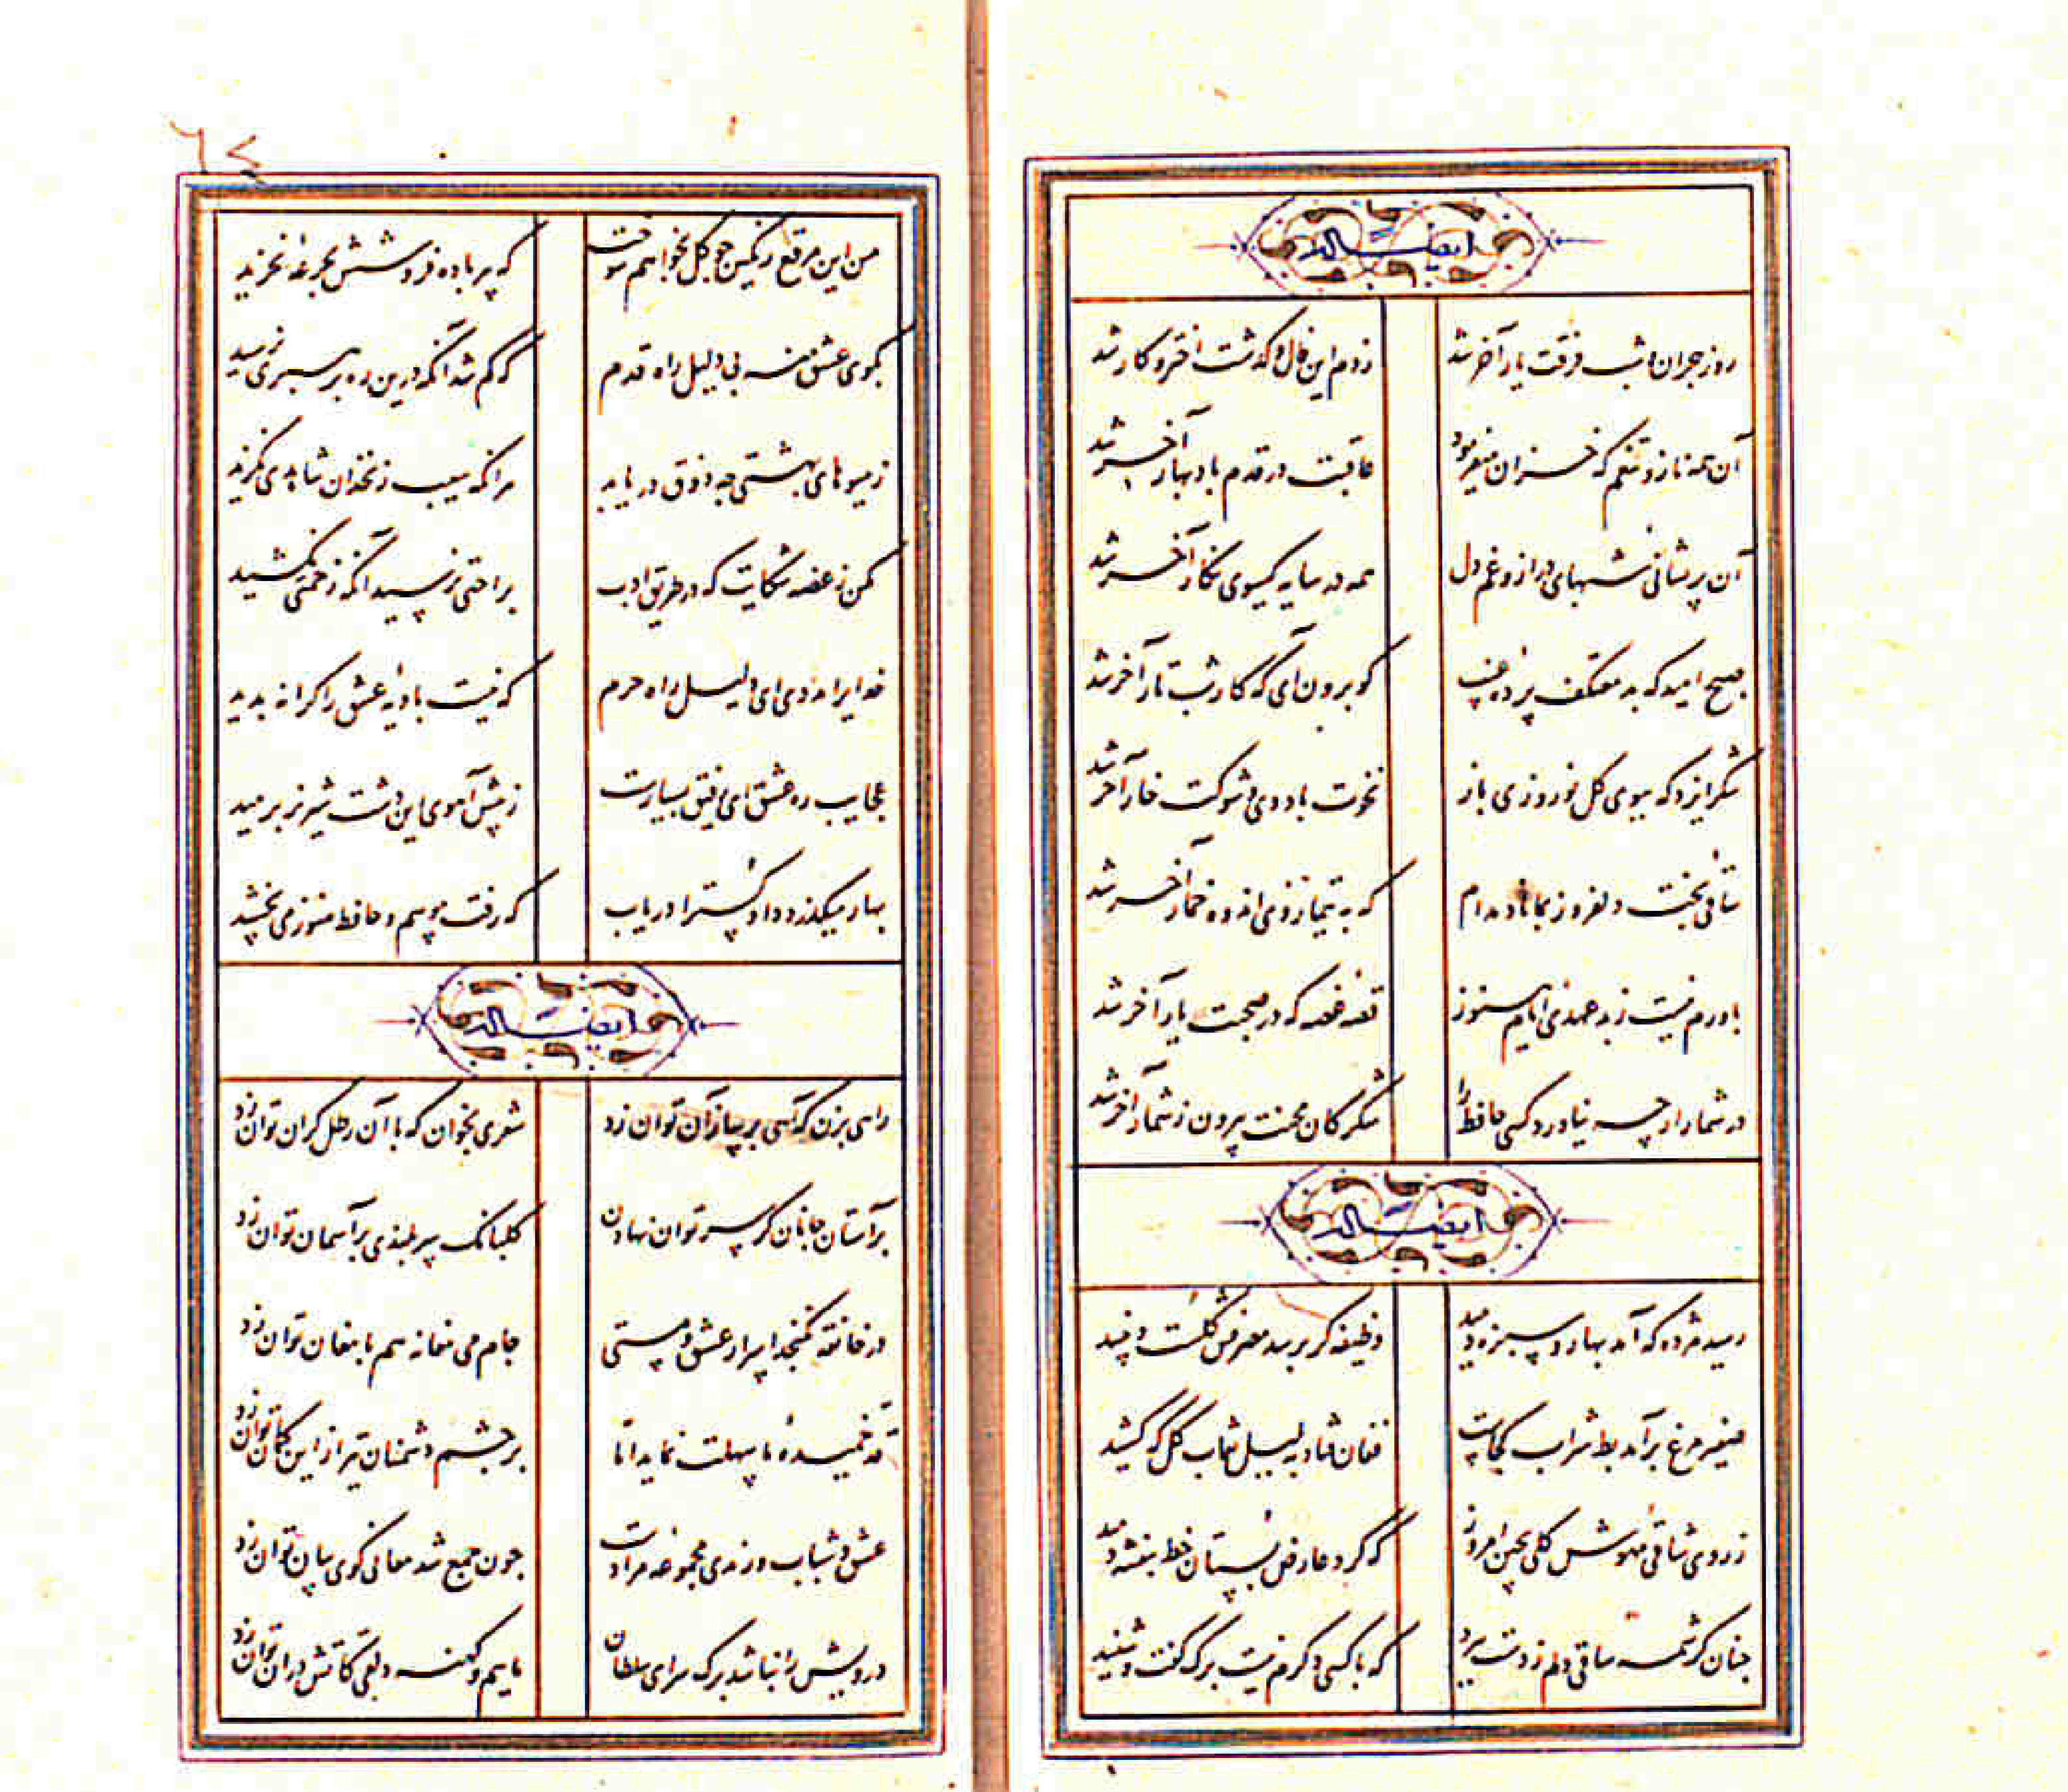 ایضاً له
روز هجران و شب فرقت یار آخر شد زدم این فال و گذشت اختر و کار آخر شد
آن همه ناز و تنعم که خزان میفرمود عاقبت در قدم باد بهار آخر شد
آن پریشانی شبهای دراز و غم دل همه در سایه گیسوی نگار آخر شد
صبح امید که بد معتکف پرده غیب گو برون آی که کار شب تار آخر شد
شکر ایزد که ببوی گل نوروزی باز نخوت باد دی و شوکت خار آخر شد
ساقی بخت دلفروز بماناد مدام که به تیمار وی اندوه خمار آخر شد
باورم نیست ز بدعهدی ایام هنوز قصه غصه که در صحبت یار آخر شد
در شمار ارچه نیاورد کسی حافظ را شکر کان محنت بیرون ز شمار آخر شد
ایضاً له
رسید مژده که آمد بهار و سبزه دمید وظیفه گر برسد مصرفش گلست و نبید
صفیر مرغ برآمد بط شراب کجاست فغان فتاد به بلبل نقاب گل که کشید
ز روی ساقی مهوش گلی بچین امروز که گرد عارض بستان خط بنفشه دمید
چنان کرشمه ساقی دلم ز دست ببرد که با کسی دگرم نیست برگ گفت و شنید
۶۴
من این مرقع رنگین چو گل بخواهم سوخت که پیر باده فروشش بجرعه نخرید
بکوی عشق منه بی دلیل راه قدم که گم شد آنکه درین ره برهبری نرسید
ز میوهای بهشتی چه ذوق دریابد هر آنکه سیب زنخدان شاهدی نگزید
مکن ز غصه شکایت که در طریق ادب براحتی نرسید آنکه زحمتی نکشید
خدایرا مددی ای دلیل راه حرم که نیست بادیه عشق را کرانه پدید
عجایب ره عشق ای رفیق بسیارست ز پیش آهوی این دشت شیر نر برمید
بهار میگذرد دادگسترا دریاب که رفت موسم و حافظ هنوز می نچشید
ایضاً له
راهی بزن که آهی بر ساز آن توان زد شعری بخوان که با آن رطل گران توان زد
بر آستان جانان گر سر توان نهادن گلبانگ سربلندی بر آسمان توان زد
در خانقه نگنجد اسرار عشق و مستی جام می مغانه هم با مغان توان زد
قد خمیده ما سهلت نماید اما بر چشم دشمنان تیر از این کمان توان زد
عشق و شباب و رندی مجموعه مرادست چون جمع شد معانی گوی بیان توان زد
درویش را نباشد برگ سرای سلطان ماییم و کهنه دلقی کاتش در آن توان زد